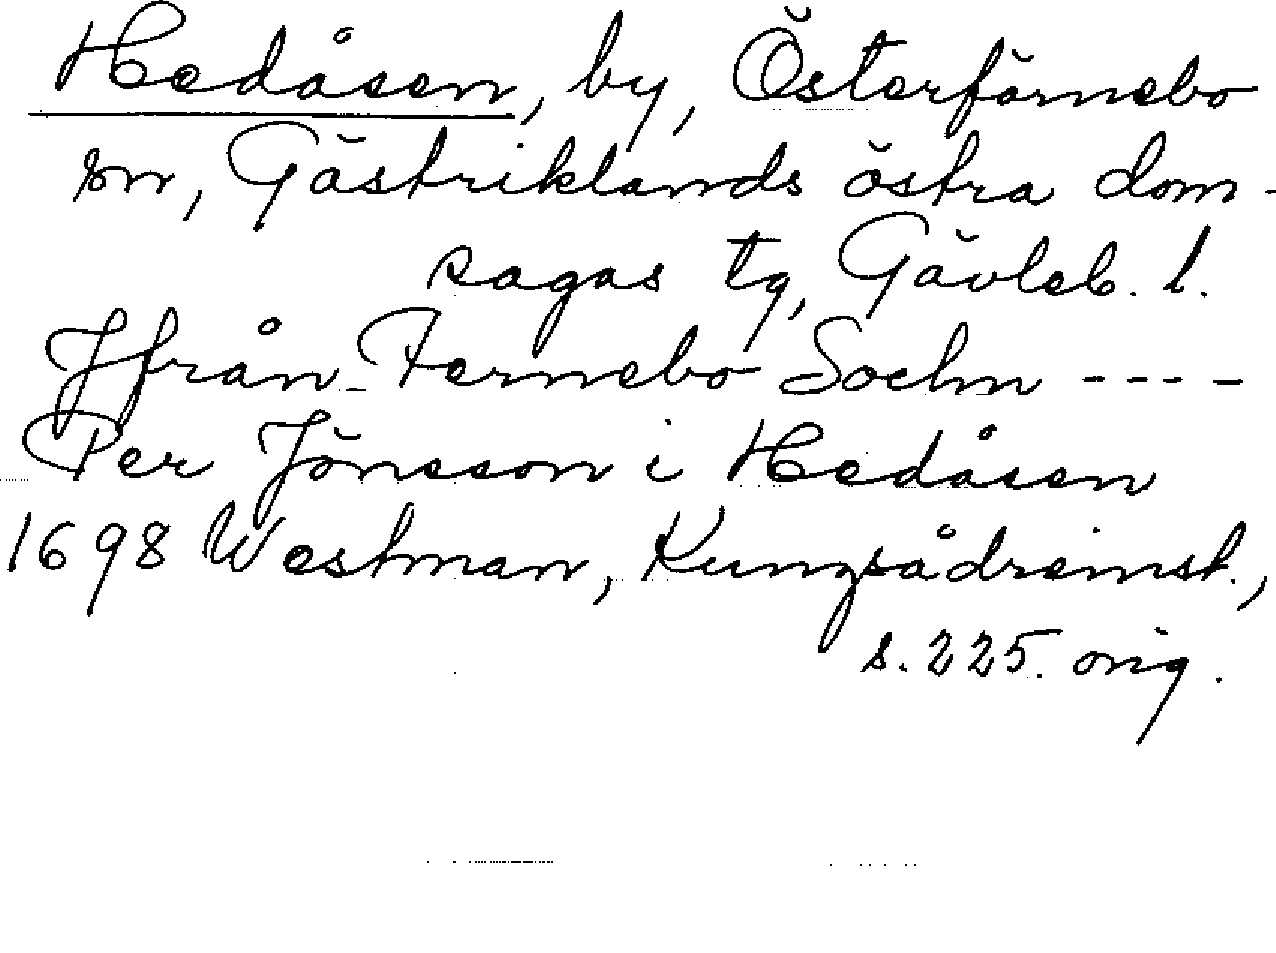 Hedåsen, by, Österfärnebo
sn, Gästriklands östra dom-
sagas tg, Gävleb. l.
Ifrån Fernebo Sochn ----
Per Jönsson i Hedåsen
1698 Westman, Kungsådreinst.,
s. 225. orig.